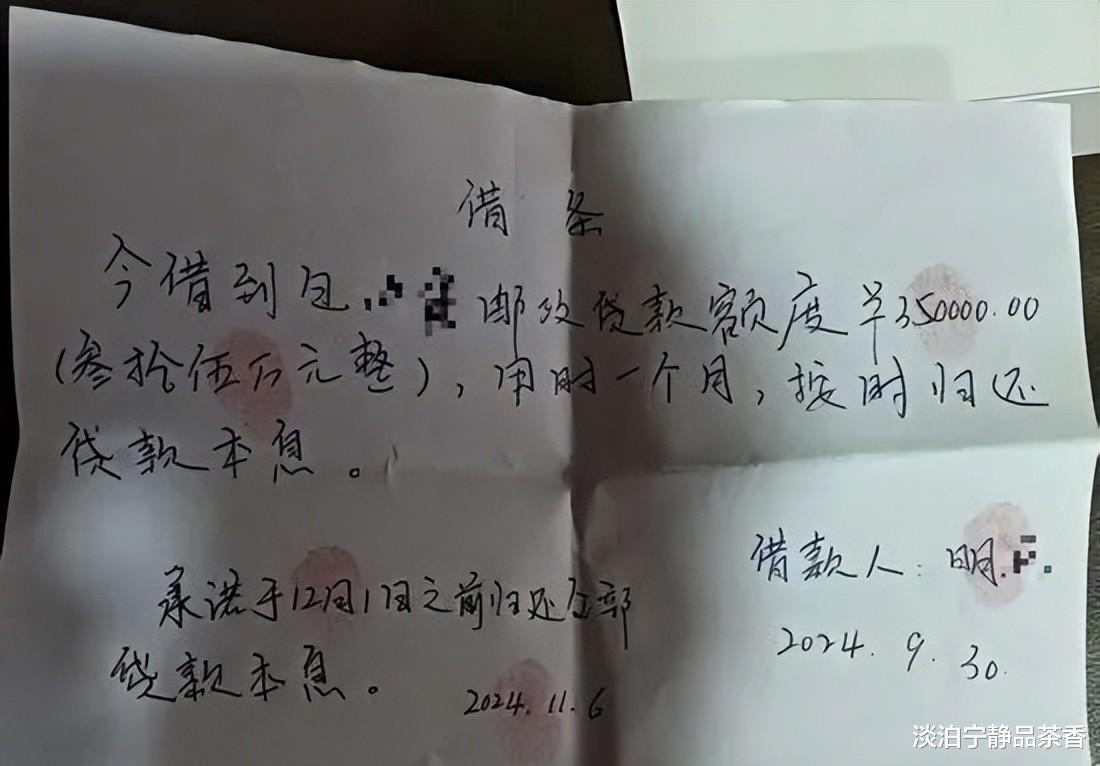 借 条
今借到包 邮政贷款额度¥350000.00
(叁拾伍万元整),用时一个月,按时归还
贷款本息。
借款人:明
2024.9.30.
承诺于12月1日之前归还全部
贷款本息。
2024.11.6
淡泊宁静品茶香